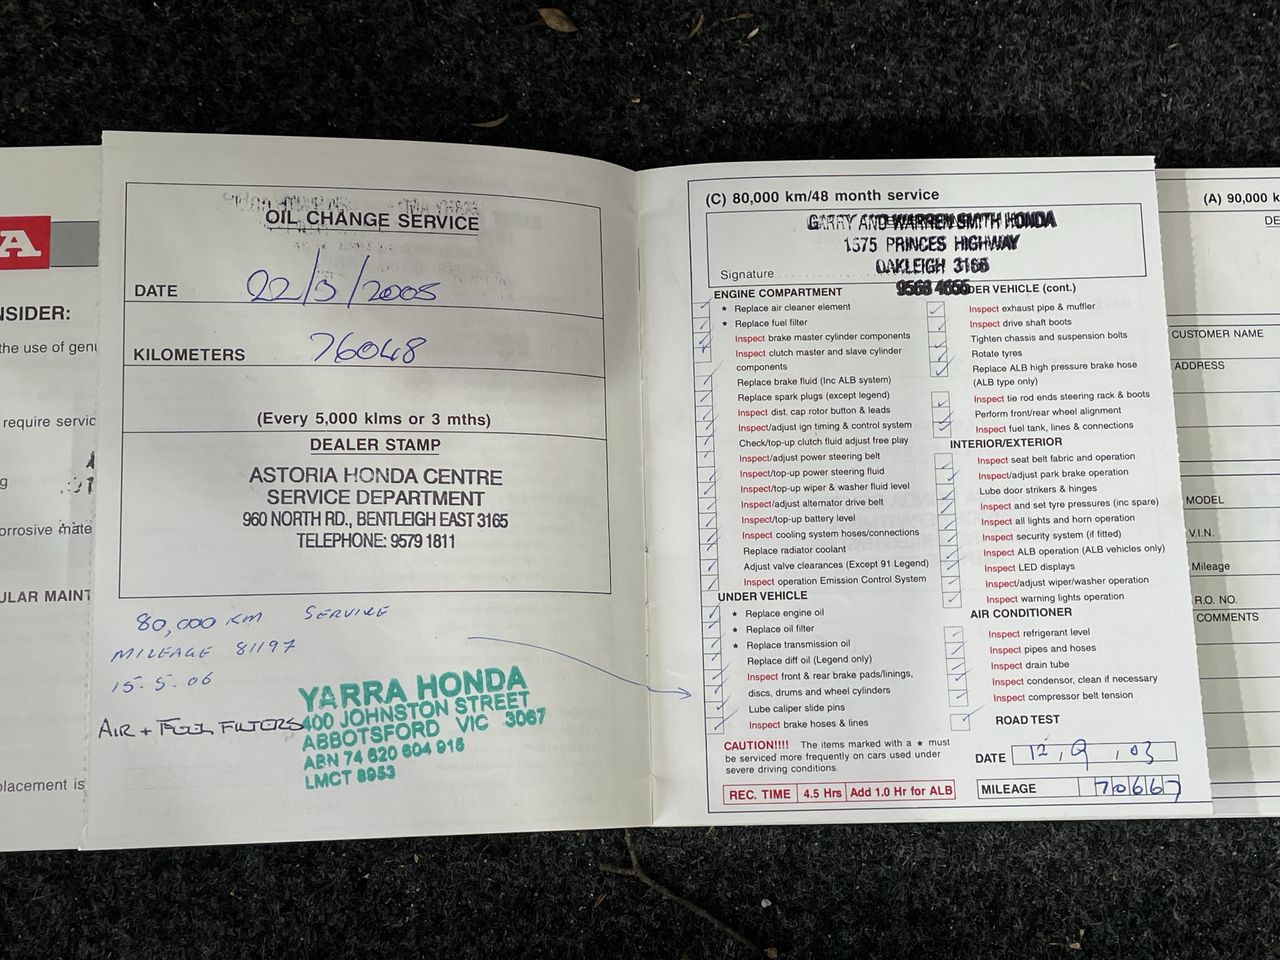 A
NSIDER:
the use of genu
require servic
g
orrosive mate
ULAR MAINT
placement is
OIL CHANGE SERVICE
DATE 22/3/2005
KILOMETERS 76048
(Every 5,000 klms or 3 mths)
DEALER STAMP
ASTORIA HONDA CENTRE
SERVICE DEPARTMENT
960 NORTH RD., BENTLEIGH EAST 3165
TELEPHONE: 9579 1811
80,000 KM SERVICE
MILEAGE 81197
15.5.06
AIR + FUEL FILTERS
YARRA HONDA
400 JOHNSTON STREET
ABBOTSFORD VIC 3067
ABN 74 620 604 918
LMCT 8953
(C) 80,000 km/48 month service
GARRY AND WARREN SMITH HONDA
1375 PRINCES HIGHWAY
OAKLEIGH 3166
9568 4655
Signature
ENGINE COMPARTMENT
★ Replace air cleaner element
★ Replace fuel filter
Inspect brake master cylinder components
Inspect clutch master and slave cylinder
components
Replace brake fluid (Inc ALB system)
Replace spark plugs (except legend)
Inspect dist. cap rotor button & leads
Inspect/adjust ign timing & control system
Check/top-up clutch fluid adjust free play
Inspect/adjust power steering belt
Inspect/top-up power steering fluid
Inspect/top-up wiper & washer fluid level
Inspect/adjust alternator drive belt
Inspect/top-up battery level
Inspect cooling system hoses/connections
Replace radiator coolant
Adjust valve clearances (Except 91 Legend)
Inspect operation Emission Control System
UNDER VEHICLE
★ Replace engine oil
★ Replace oil filter
★ Replace transmission oil
Replace diff oil (Legend only)
Inspect front & rear brake pads/linings,
discs, drums and wheel cylinders
Lube caliper slide pins
Inspect brake hoses & lines
CAUTION!!!! The items marked with a ★ must
be serviced more frequently on cars used under
severe driving conditions.
REC. TIME 4.5 Hrs Add 1.0 Hr for ALB
DER VEHICLE (cont.)
Inspect exhaust pipe & muffler
Inspect drive shaft boots
Tighten chassis and suspension bolts
Rotate tyres
Replace ALB high pressure brake hose
(ALB type only)
Inspect tie rod ends steering rack & boots
Perform front/rear wheel alignment
Inspect fuel tank, lines & connections
INTERIOR/EXTERIOR
Inspect seat belt fabric and operation
Inspect/adjust park brake operation
Lube door strikers & hinges
Inspect and set tyre pressures (inc spare)
Inspect all lights and horn operation
Inspect security system (if fitted)
Inspect ALB operation (ALB vehicles only)
Inspect LED displays
Inspect/adjust wiper/washer operation
Inspect warning lights operation
AIR CONDITIONER
Inspect refrigerant level
Inspect pipes and hoses
Inspect drain tube
Inspect condensor, clean if necessary
Inspect compressor belt tension
ROAD TEST
DATE 12, 9, 03
MILEAGE 70667
(A) 90,000 k
DE
CUSTOMER NAME
ADDRESS
MODEL
V.I.N.
Mileage
R.O. NO.
COMMENTS